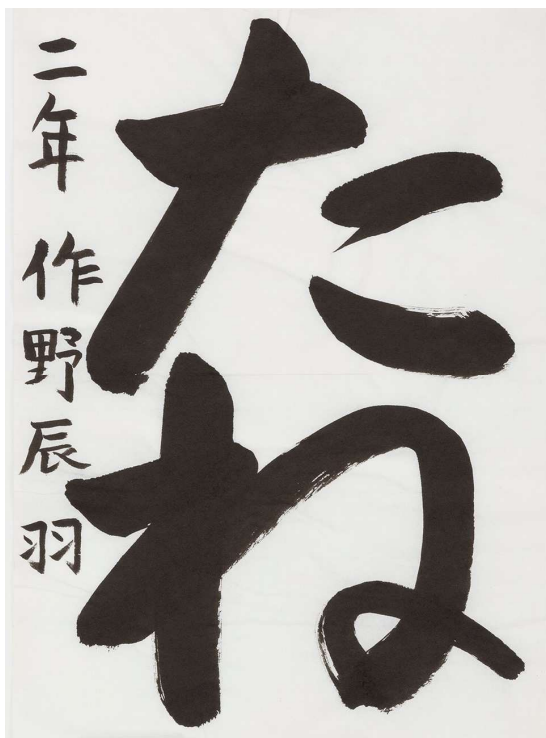 たね
二年 作野辰羽